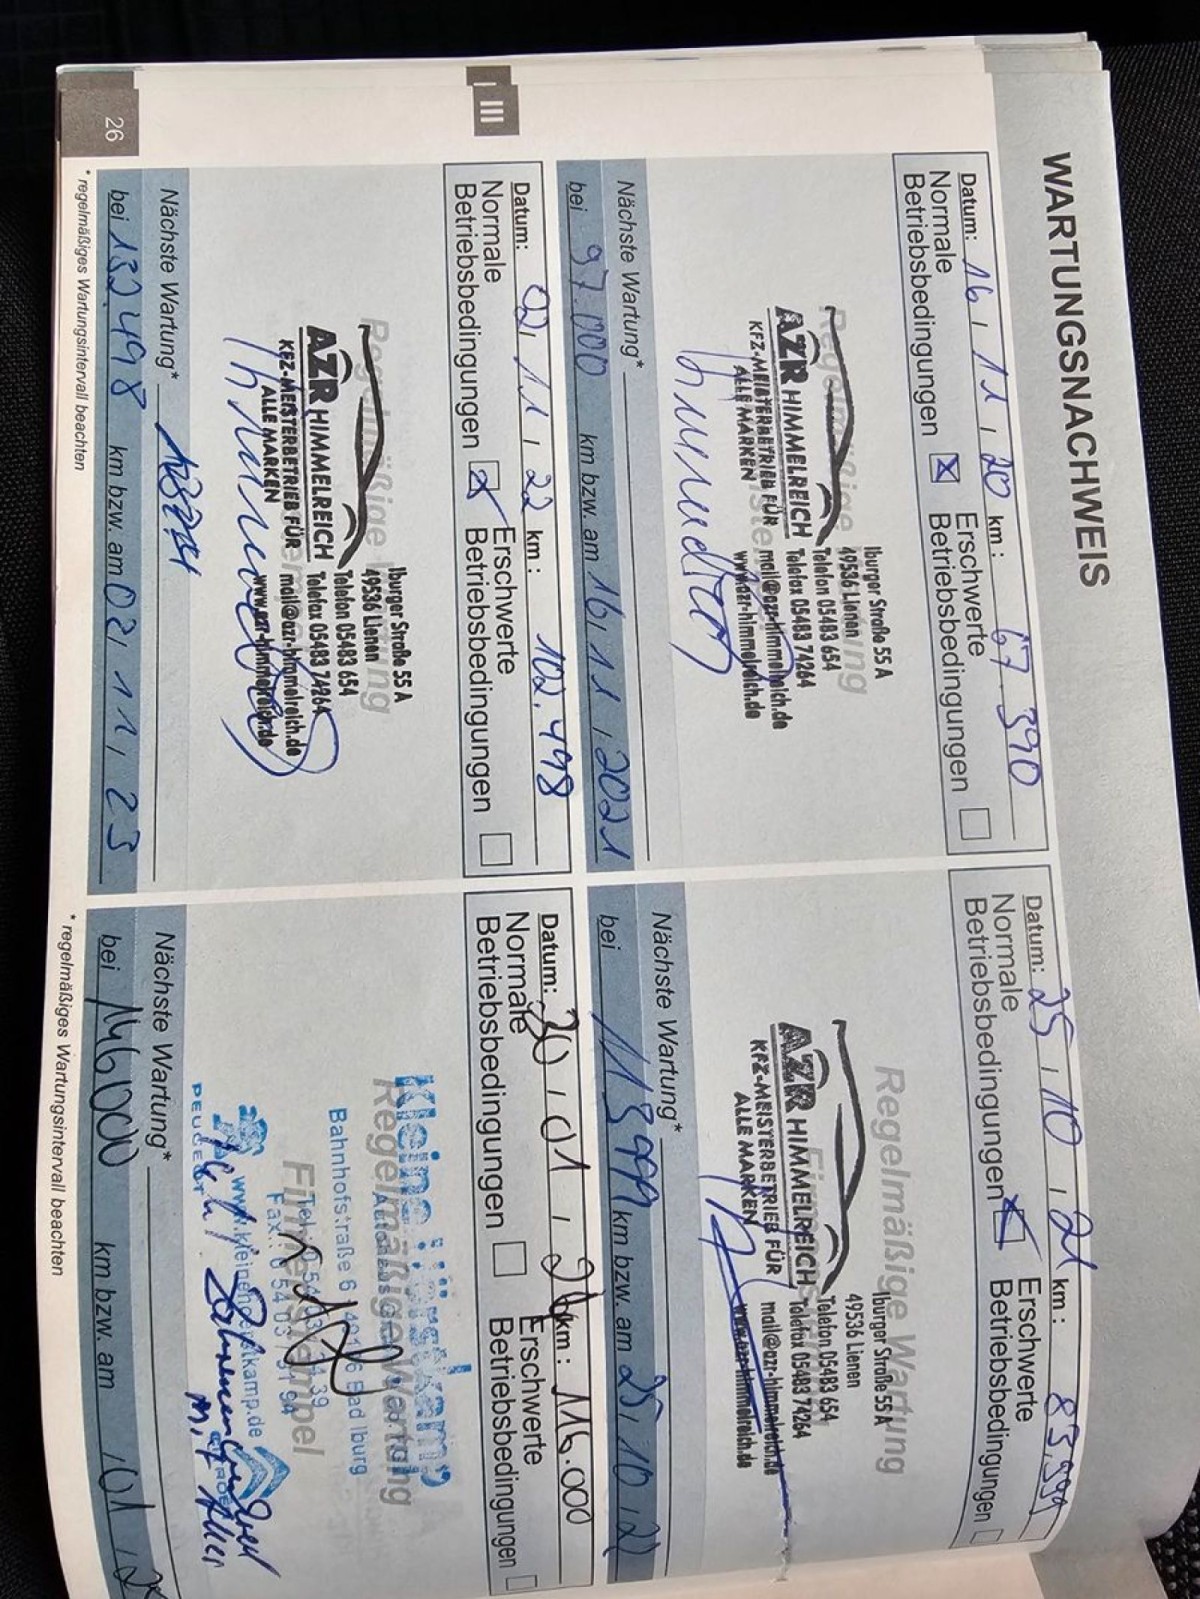 WARTUNGSNACHWEIS
Datum: 16, 11, 20 km: 67.390
Normale Betriebsbedingungen ☒ Erschwerte Betriebsbedingungen ☐
Regelmäßige Wartung
AZR HIMMELREICH
KFZ-MEISTERBETRIEB FÜR
ALLE MARKEN
Iburger Straße 55 A
49536 Lienen
Telefon 05483 654
Telefax 05483 74264
mail@azr-himmelreich.de
www.azr-himmelreich.de
Nächste Wartung*
bei 97.000 km bzw. am 16, 11, 2021
Datum: 25, 10, 21 km: 83.999
Normale Betriebsbedingungen ☒ Erschwerte Betriebsbedingungen ☐
Regelmäßige Wartung
AZR HIMMELREICH
KFZ-MEISTERBETRIEB FÜR
ALLE MARKEN
Iburger Straße 55 A
49536 Lienen
Telefon 05483 654
Telefax 05483 74264
mail@azr-himmelreich.de
www.azr-himmelreich.de
Nächste Wartung*
bei 113999 km bzw. am 25, 10, 22
III
Datum: 02, 11, 22 km: 102.498
Normale Betriebsbedingungen ☒ Erschwerte Betriebsbedingungen ☐
Regelmäßige Wartung
AZR HIMMELREICH
KFZ-MEISTERBETRIEB FÜR
ALLE MARKEN
Iburger Straße 55 A
49536 Lienen
Telefon 05483 654
Telefax 05483 74264
mail@azr-himmelreich.de
www.azr-himmelreich.de
Nächste Wartung*
bei 132.498 km bzw. am 02, 11, 23
* regelmäßiges Wartungsintervall beachten
Datum: 30, 01, km: 116.000
Normale Betriebsbedingungen ☐ Erschwerte Betriebsbedingungen ☐
Regelmäßige Wartung
Firmenstempel
Bahnhofstraße 6 Bad Iburg
PEUGEOT
Nächste Wartung*
bei 146000 km bzw. am 01,
* regelmäßiges Wartungsintervall beachten
26